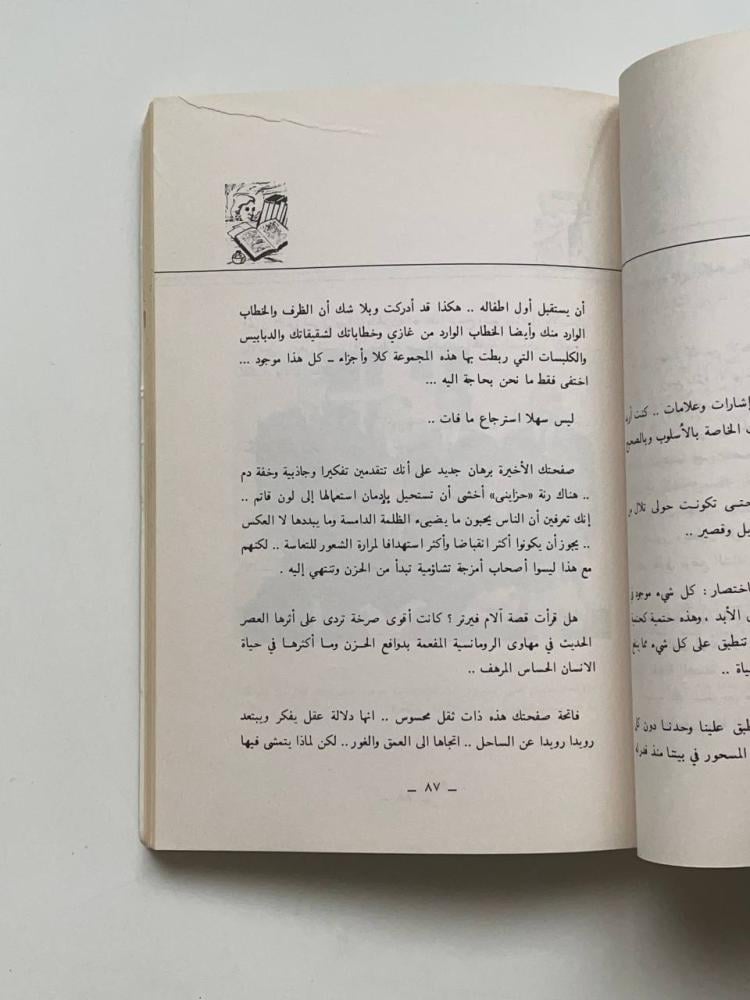 أن يستقبل أول اطفاله .. هكذا قد أدركت وبلا شك أن الظرف والخطاب
الوارد منك وأيضا الخطاب الوارد من غازي وخطاباتك لشقيقاتك والدبابيس
والكلبسات التي ربطت بها هذه المجموعة كلا وأجزاء ــ كل هذا موجود ...
اختفى فقط ما نحن بحاجة اليه ...
ليس سهلا استرجاع ما فات ..
صفحتك الأخيرة برهان جديد على أنك تتقدمين تفكيرا وجاذبية وخفة دم
.. هناك رنة «حزايني» أخشى أن تستحيل بإدمان استعمالها إلى لون قاتم ..
إنك تعرفين أن الناس يحبون ما يضيىء الظلمة الدامسة وما يبددها لا العكس
.. يجوز أن يكونوا أكثر انقباضا وأكثر استهدافا لمرارة الشعور للتعاسة .. لكنهم
مع هذا ليسوا أصحاب أمزجة تشاؤمية تبدأ من الحزن وتنتهي إليه .
هل قرأت قصة آلام فيرتر ؟ كانت أقوى صرخة تردى على أثرها العصر
الحديث في مهاوى الرومانسية المفعمة بدوافع الحزن وما أكثرها في حياة
الانسان الحساس المرهف ..
فاتحة صفحتك هذه ذات ثقل محسوس .. انها دلالة عقل يفكر ويبتعد
رويدا رويدا عن الساحل .. اتجاها الى العمق والغور .. لكن لماذا يتمشى فيها
ــ ٨٧ ــ
إشارات وعلامات .. كنت
الخاصة بالأسلوب
حتى تكونت حولى تلال
وقصير ..
كل شيء موجود
الأبد ، وهذه حتمية
تنطبق على كل شيء
علينا وحدنا دون
المسحور في بيتنا منذ